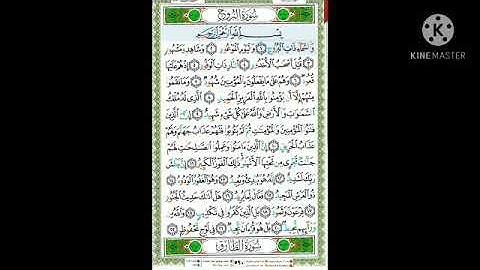 سُورَةُ البُرُوجِ
KINEMASTER
بِسْمِ اللَّهِ الرَّحْمَٰنِ الرَّحِيمِ
وَالسَّمَاءِ ذَاتِ الْبُرُوجِ ۝١ وَالْيَوْمِ الْمَوْعُودِ ۝٢ وَشَاهِدٍ وَمَشْهُودٍ
۝٣ قُتِلَ أَصْحَابُ الْأُخْدُودِ ۝٤ النَّارِ ذَاتِ الْوَقُودِ ۝٥ إِذْ هُمْ عَلَيْهَا
قُعُودٌ ۝٦ وَهُمْ عَلَىٰ مَا يَفْعَلُونَ بِالْمُؤْمِنِينَ شُهُودٌ ۝٧ وَمَا نَقَمُوا
مِنْهُمْ إِلَّا أَن يُؤْمِنُوا بِاللَّهِ الْعَزِيزِ الْحَمِيدِ ۝٨ الَّذِي لَهُ مُلْكُ
السَّمَاوَاتِ وَالْأَرْضِ وَاللَّهُ عَلَىٰ كُلِّ شَيْءٍ شَهِيدٌ ۝٩ إِنَّ الَّذِينَ
فَتَنُوا الْمُؤْمِنِينَ وَالْمُؤْمِنَاتِ ثُمَّ لَمْ يَتُوبُوا فَلَهُمْ عَذَابُ جَهَنَّمَ وَلَهُمْ
عَذَابُ الْحَرِيقِ ۝١٠ إِنَّ الَّذِينَ آمَنُوا وَعَمِلُوا الصَّالِحَاتِ لَهُمْ
جَنَّاتٌ تَجْرِي مِن تَحْتِهَا الْأَنْهَارُ ذَٰلِكَ الْفَوْزُ الْكَبِيرُ ۝١١ إِنَّ بَطْشَ
رَبِّكَ لَشَدِيدٌ ۝١٢ إِنَّهُ هُوَ يُبْدِئُ وَيُعِيدُ ۝١٣ وَهُوَ الْغَفُورُ الْوَدُودُ ۝١٤
ذُو الْعَرْشِ الْمَجِيدُ ۝١٥ فَعَّالٌ لِّمَا يُرِيدُ ۝١٦ هَلْ أَتَاكَ حَدِيثُ الْجُنُودِ
۝١٧ فِرْعَوْنَ وَثَمُودَ ۝١٨ بَلِ الَّذِينَ كَفَرُوا فِي تَكْذِيبٍ ۝١٩ وَاللَّهُ مِن
وَرَائِهِم مُّحِيطٌ ۝٢٠ بَلْ هُوَ قُرْآنٌ مَّجِيدٌ ۝٢١ فِي لَوْحٍ مَّحْفُوظٍ ۝٢٢
سُورَةُ الطَّارِقِ
٥٩٠